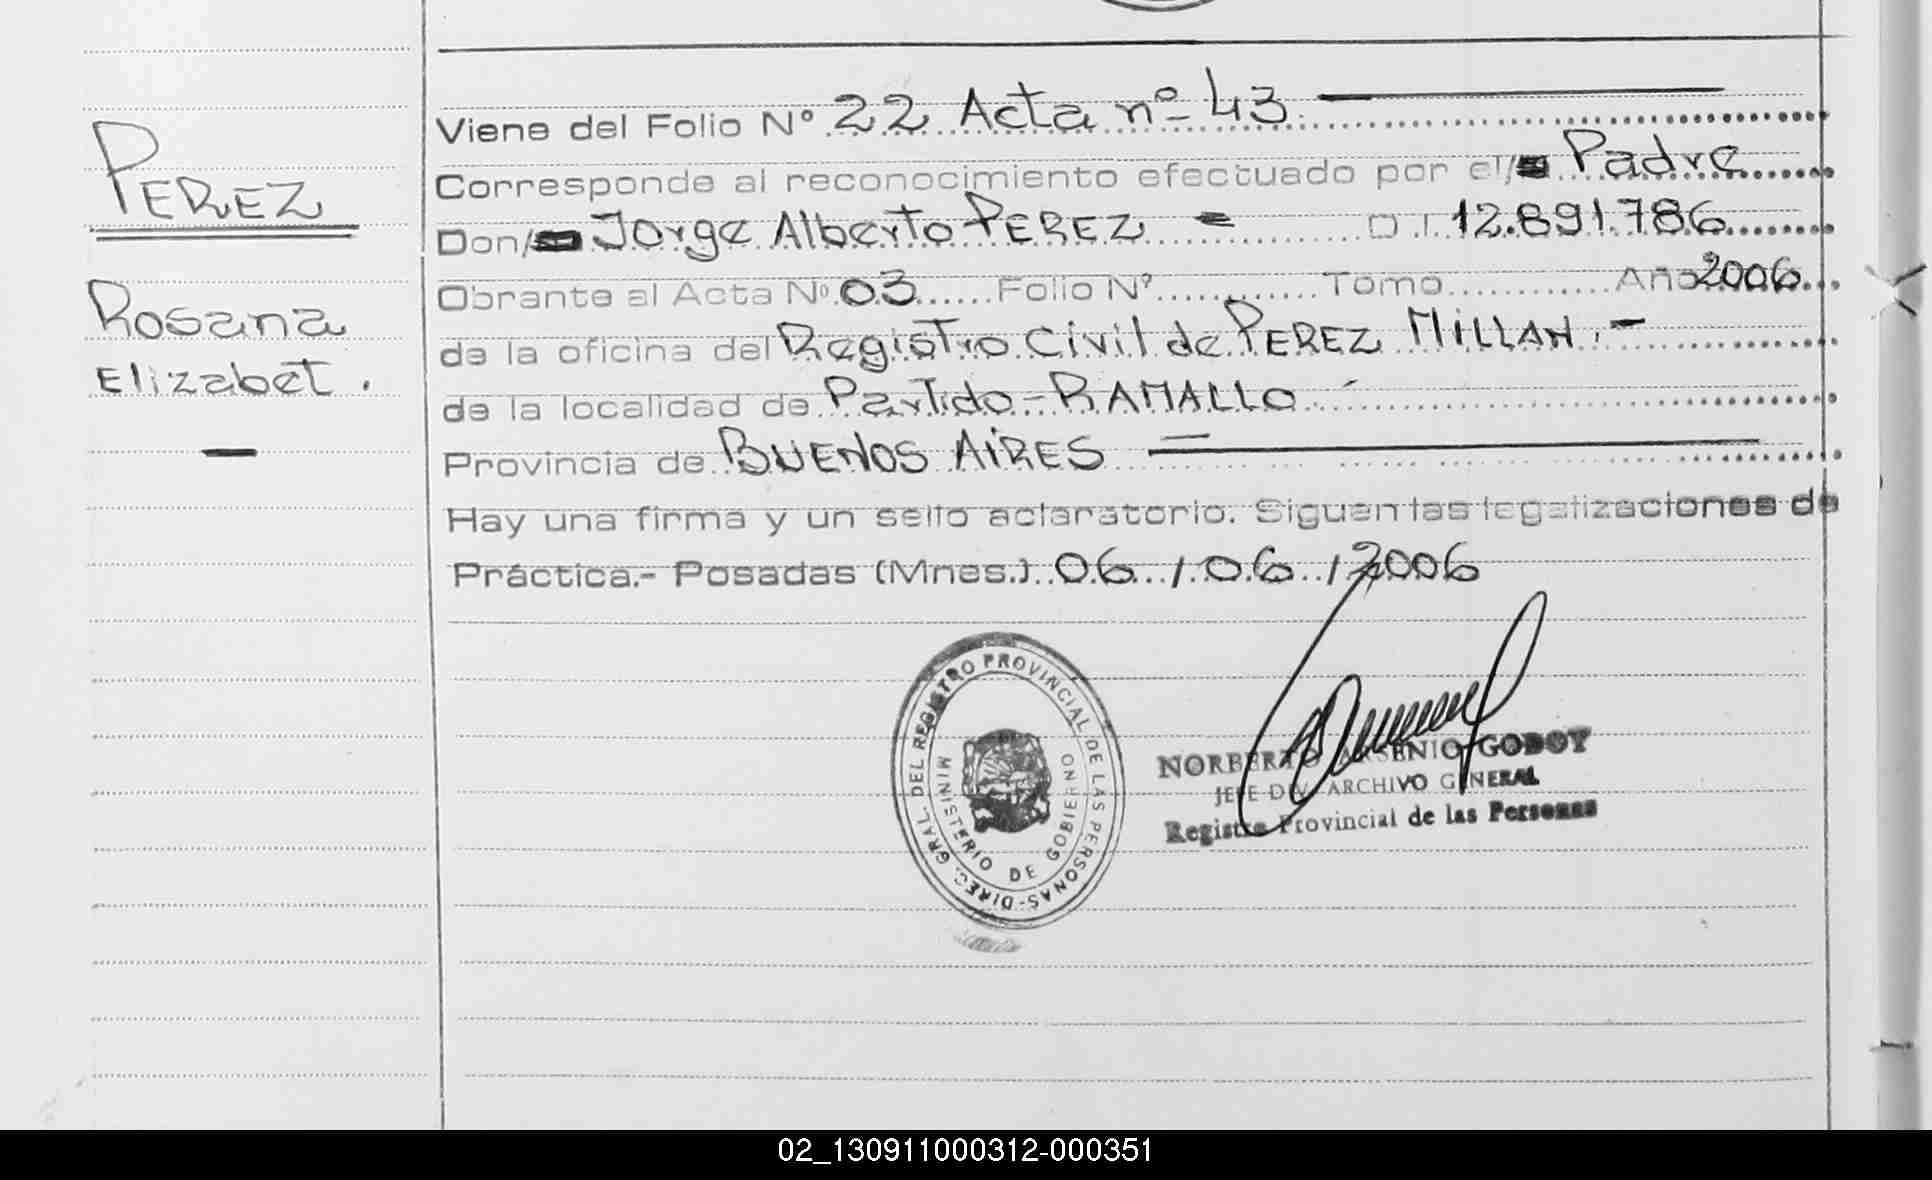 Viene del Folio N° 22 Acta nº 43
Corresponde al reconocimiento efectuado por el/ Padre
PEREZ
Don/ Jorge Alberto PEREZ - D.I. 12.891.786
Obrante al Acta N° 03 Folio N° Tomo Año 2006
Rosana
de la oficina del Registro Civil de PEREZ MILLAN.-
Elizabet.
de la localidad de Partido - RAMALLO
Provincia de BUENOS AIRES
Hay una firma y un sello aclaratorio. Siguen las legalizaciones de
Práctica.- Posadas (Mnes.) 06 / 06 / 2006
DIREC. GRAL. DEL REGISTRO PROVINCIAL DE LAS PERSONAS-
MINISTERIO DE GOBIERNO
NORBERTO ARSENIO GODOY
JEFE DIV. ARCHIVO GENERAL
Registro Provincial de las Personas
02_130911000312-000351